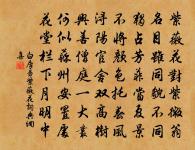 紫薇花對紫微翁
名目雖同貌不同
獨占芳菲當夏景
不將顏色托春風
潯陽官舍雙高樹
興善僧庭一大叢
何似蘇州安置處
花堂欄下月明中
白居易紫薇花詞典網
集